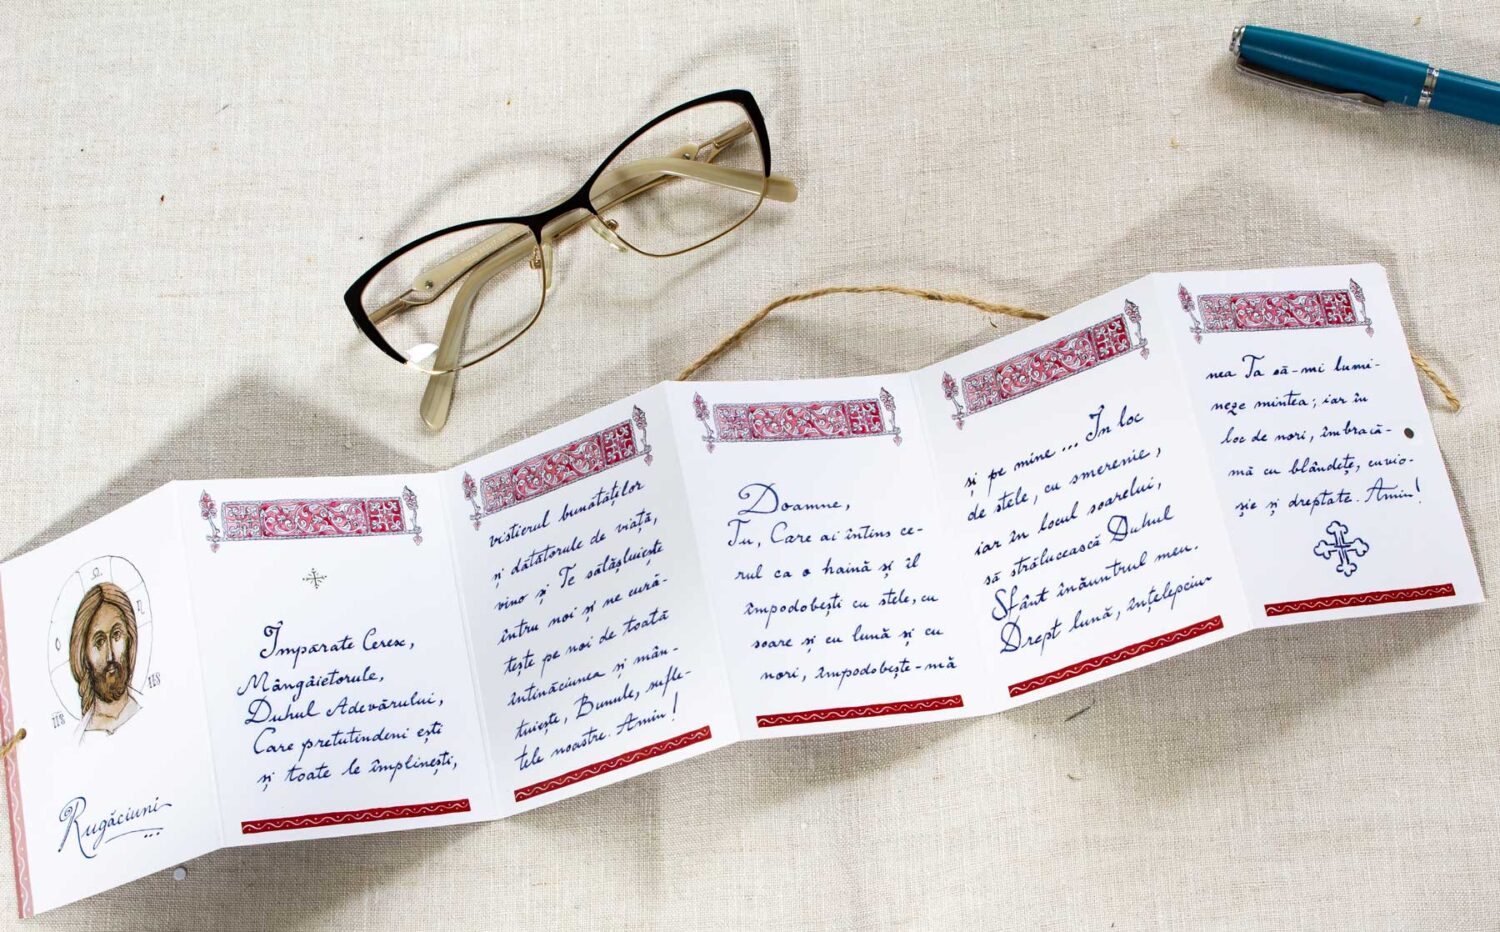 Ω
O
N
IIS
IIS
Rugăciuni
Împărate Ceresc,
Mângâietorule,
Duhul Adevărului,
Care pretutindeni ești
și toate le împlinești,
vistierul bunătăților
și dătătorule de viață,
vino și Te sălășluiește
întru noi și ne cură-
țește pe noi de toată
întinăciunea și mân-
tuiește, Bunule, sufle-
tele noastre. Amin!
Doamne,
Tu, Care ai întins ce-
rul ca o haină și îl
împodobești cu stele, cu
soare și cu lună și cu
nori, împodobește-mă
și pe mine... În loc
de stele, cu smerenie,
iar în locul soarelui,
să strălucească Duhul
Sfânt înăuntrul meu.
Drept lună, înțelepciu-
nea Ta să-mi lumi-
neze mintea; iar în
loc de nori, îmbracă-
mă cu blândețe, cuvio-
șie și dreptate. Amin!